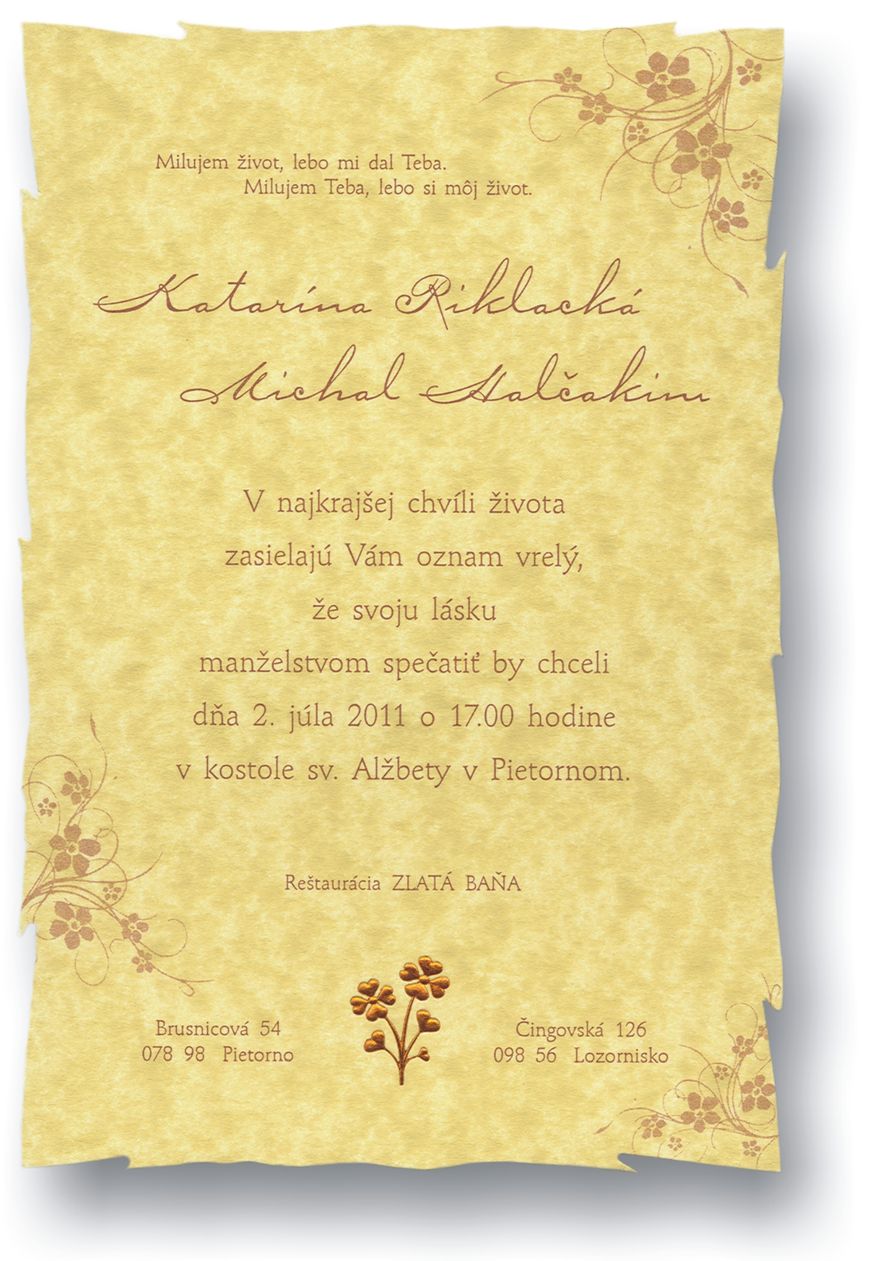 Milujem život, lebo mi dal Teba.
Milujem Teba, lebo si môj život.
Katarína Riklacká
Michal Halčakim
V najkrajšej chvíli života
zasielajú Vám oznam vrelý,
že svoju lásku
manželstvom spečatiť by chceli
dňa 2. júla 2011 o 17.00 hodine
v kostole sv. Alžbety v Pietornom.
Reštaurácia ZLATÁ BAŇA
Brusnicová 54
078 98 Pietorno
Čingovská 126
098 56 Lozornisko